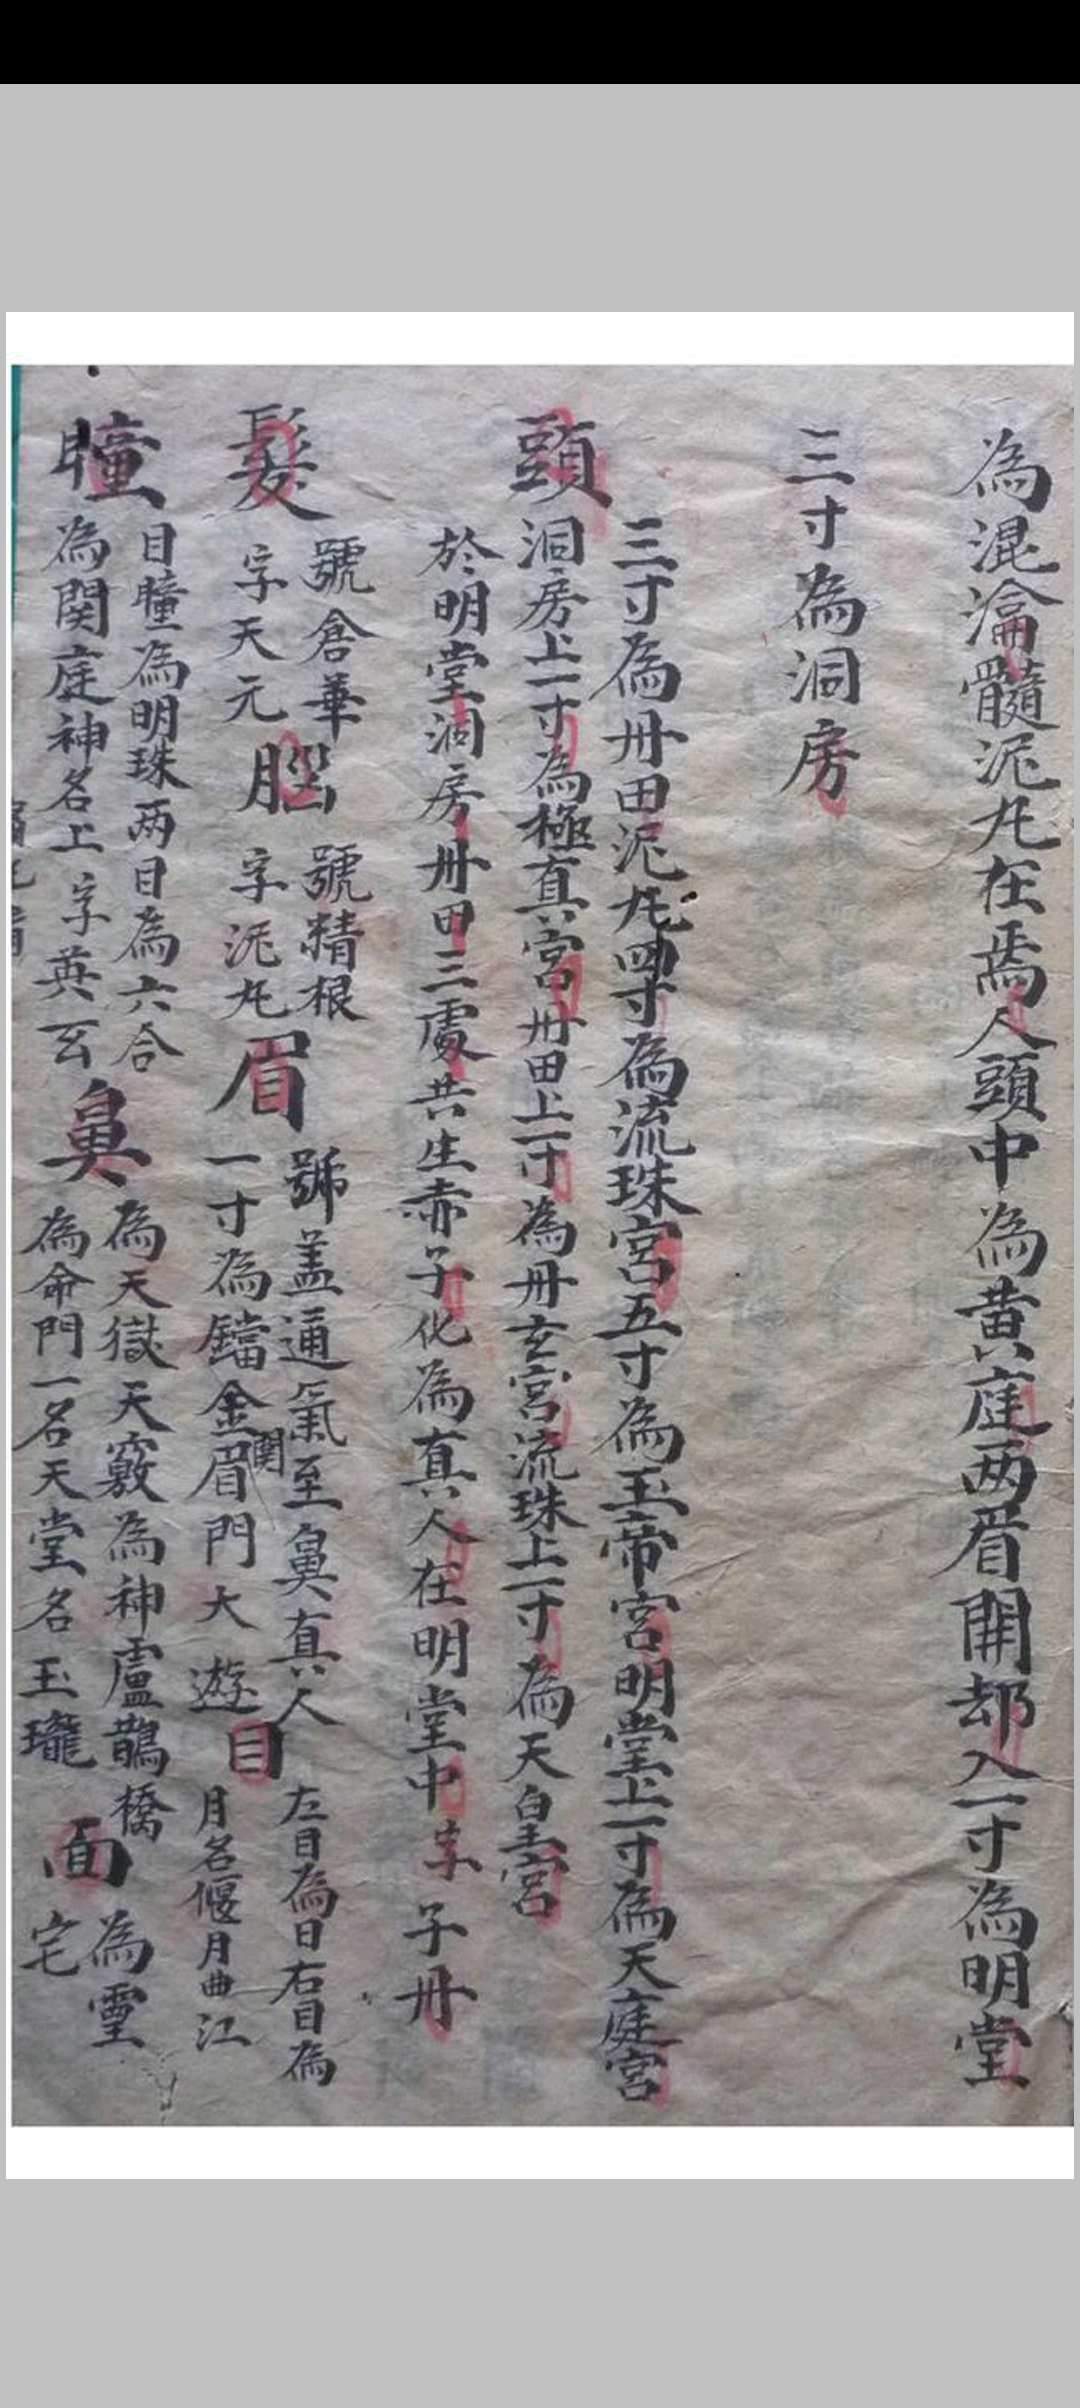 為混淪髓泥丸在焉人頭中為黄庭两眉間却入一寸為明堂
三寸為洞房
三寸為丹田泥丸四寸為流珠宮五寸為玉帝宮明堂上一寸為天庭宮
頭
洞房上一寸為極真宮丹田上一寸為丹玄宮流珠上一寸為天皇宮
於明堂洞房丹田三處共生赤子化為真人在明堂中字子丹
髮
號倉華
字天元
腦
號精根
字泥丸
眉
號盖通氣至鼻真人
一寸為鐺金眉門大遊
關
目
左目為日右目為
月名偃月曲江
瞳
目瞳為明珠两目為六合
為関庭神名上字英玄
鼻
為天獄天竅為神盧鵲橋
為命門一名天堂名玉瓏
面
為靈
宅